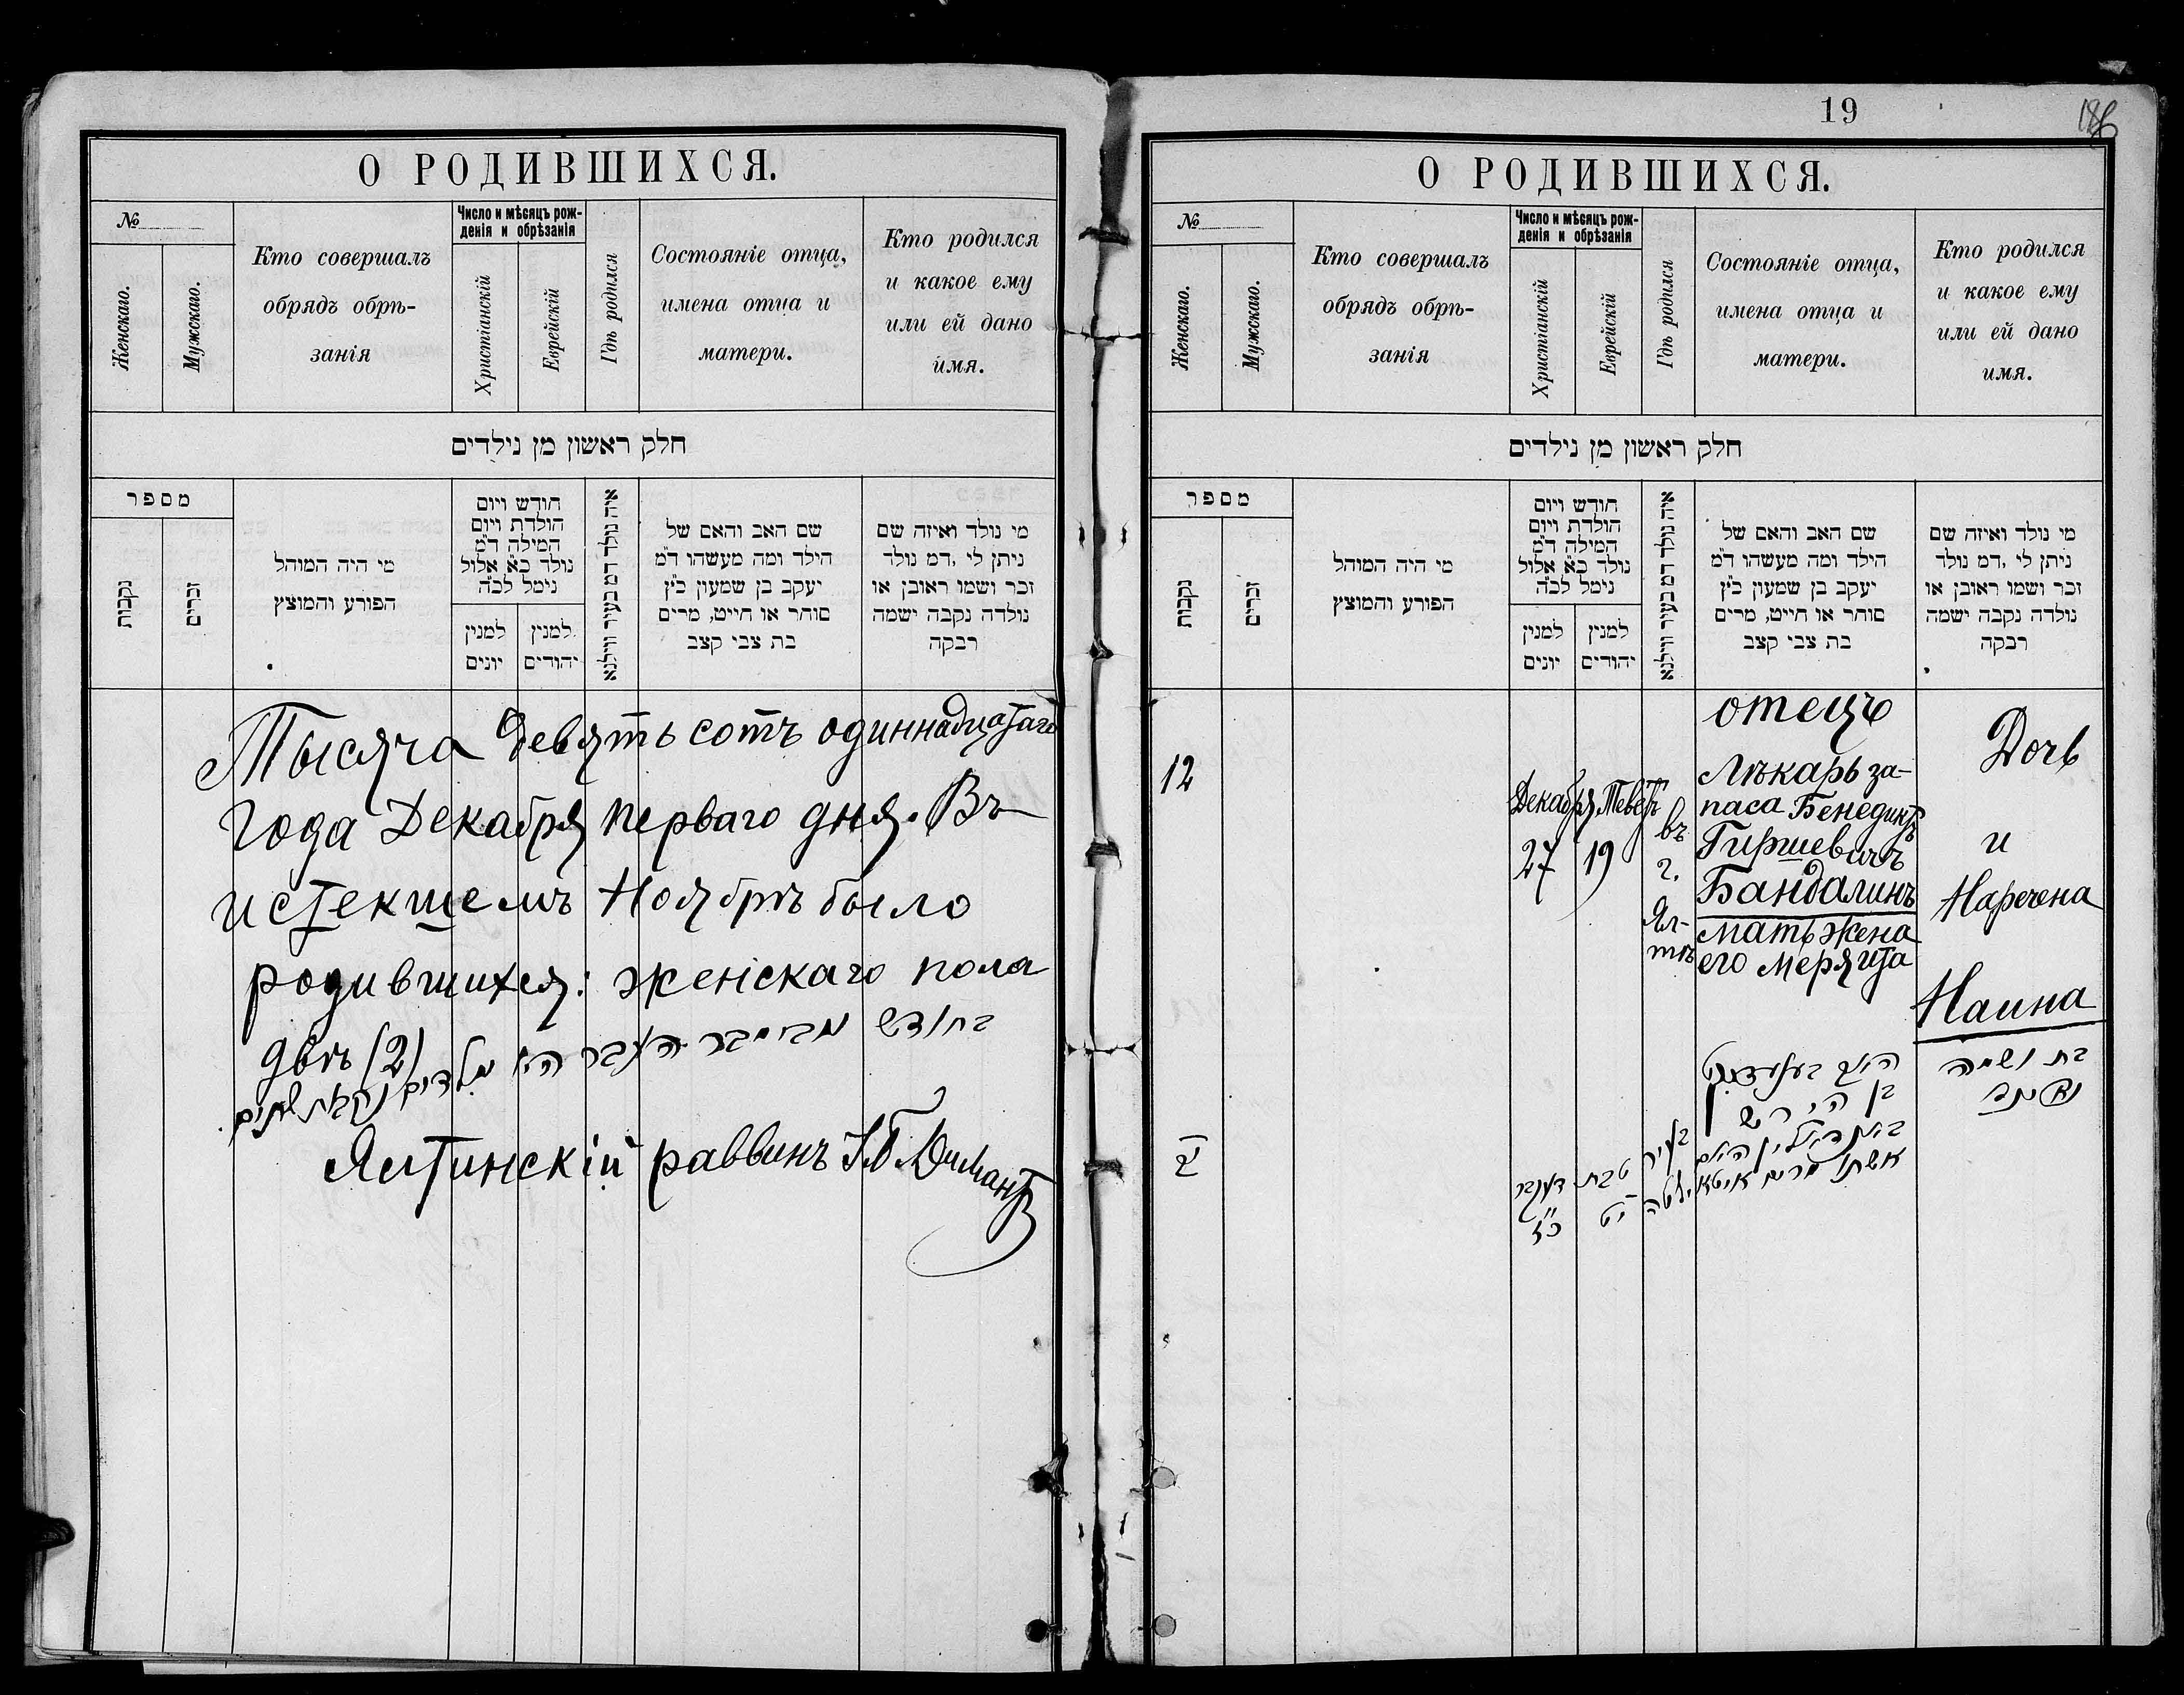 О РОДИВШИХСЯ.
№
Женскаго.
Мужскаго.
Кто совершалъ
обрядъ обрѣ-
занія
Число и мѣсяцъ рож-
денія и обрѣзанія
Христіанскій
Еврейскій
Гдѣ родился
Состояніе отца,
имена отца и
матери.
Кто родился
и какое ему
или ей дано
имя.
חלק ראשון מן נילדים
מספר
נקבות
זכרים
מי היה המוהל
הפורע והמוצץ
חודש ויום
הולדת ויום
המילה ד"מ
נולד כ"א אלול
נימל לכ"ה
למנין
יונים
למנין
יהודים
איה נולד דמ בעיר ווילנא
שם האב והאם של
הילד ומה מעשהו ד"מ
יעקב בן שמעון כ"ץ
סוחר או חייט, מרים
בת צבי קצב
מי נולד ואיזה שם
ניתן לי, דמ נולד
זכר ושמו ראובן או
נולדה נקבה ישמה
רבקה
Тысяча девятьсотъ одиннадцатаго
года Декабря перваго дня. Въ
истекшемъ Ноябрѣ было
родившихся: женскаго пола
двѣ (2)
בחודש נביימבר העבר היו
נלדים נקבות שתים
Ялтинскій раввинъ
19
О РОДИВШИХСЯ.
№
Женскаго.
Мужскаго.
Кто совершалъ
обрядъ обрѣ-
занія
Число и мѣсяцъ рож-
денія и обрѣзанія
Христіанскій
Еврейскій
Гдѣ родился
Состояніе отца,
имена отца и
матери.
Кто родился
и какое ему
или ей дано
имя.
חלק ראשון מן נילדים
מספר
נקבות
זכרים
מי היה המוהל
הפורע והמוצץ
חודש ויום
הולדת ויום
המילה ד"מ
נולד כ"א אלול
נימל לכ"ה
למנין
יונים
למנין
יהודים
איה נולד דמ בעיר ווילנא
שם האב והאם של
הילד ומה מעשהו ד"מ
יעקב בן שמעון כ"ץ
סוחר או חייט, מרים
בת צבי קצב
מי נולד ואיזה שם
ניתן לי, דמ נולד
זכר ושמו ראובן או
נולדה נקבה ישמה
רבקה
12
Декабря
27
Теветъ
19
въ
г.
Ял-
тѣ
отецъ
Лѣкарь за-
паса Бенедиктъ
Гиршевичъ
Бандалинъ
мать жена
его Меря Ита
Дочь
и
Наречена
Наина
י"ב
דעקבר
כ"ז
טבת
י"ט
בעיר
ילטה
האב בענעדיקט
בן הירש
באנדאלין האם
אשתו מרים איטא
בת ושמה